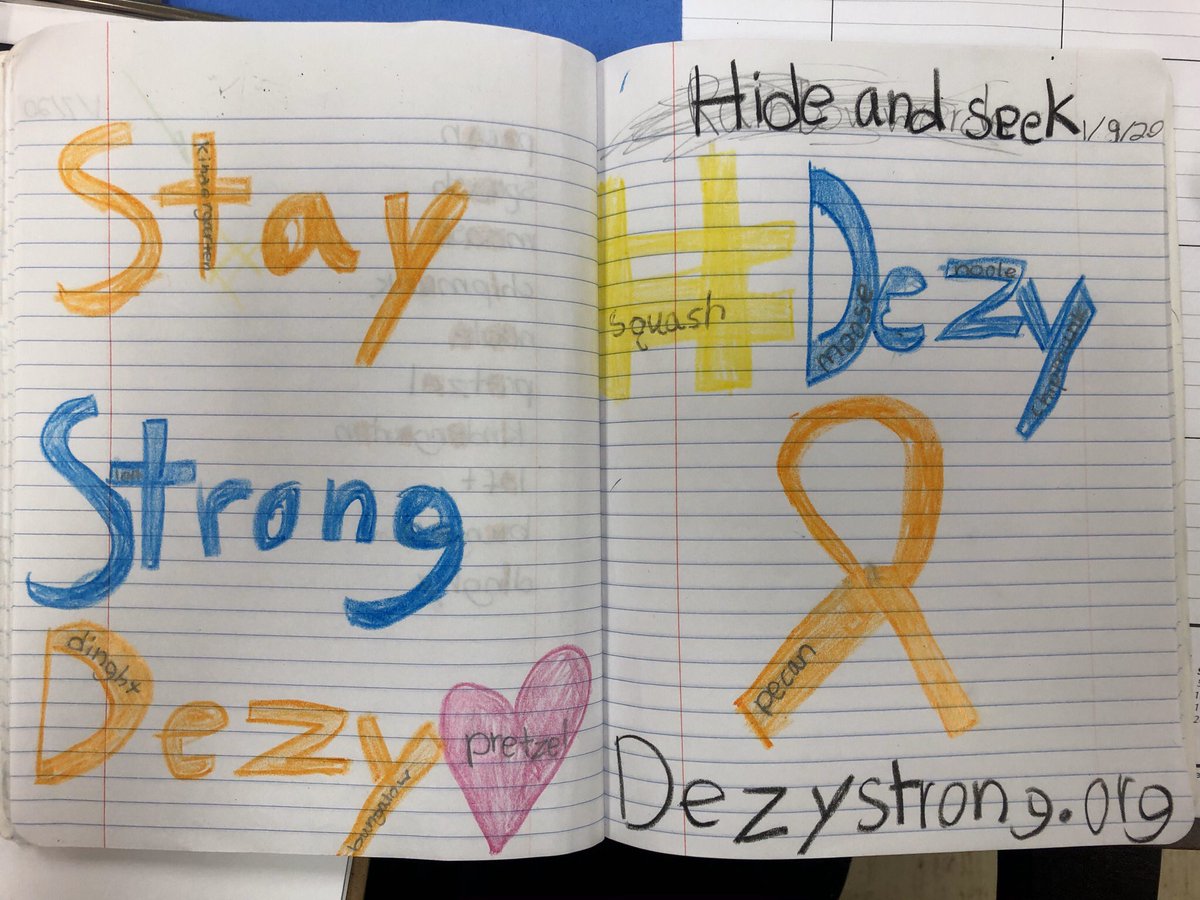 Stay
kindergarten
Strong
Dezy
dinghy
bungalow
pretzel
Hide and seek 1/9/20
#Dezy
squash
moose
noole
chipmunk
pecan
Dezystrong.org